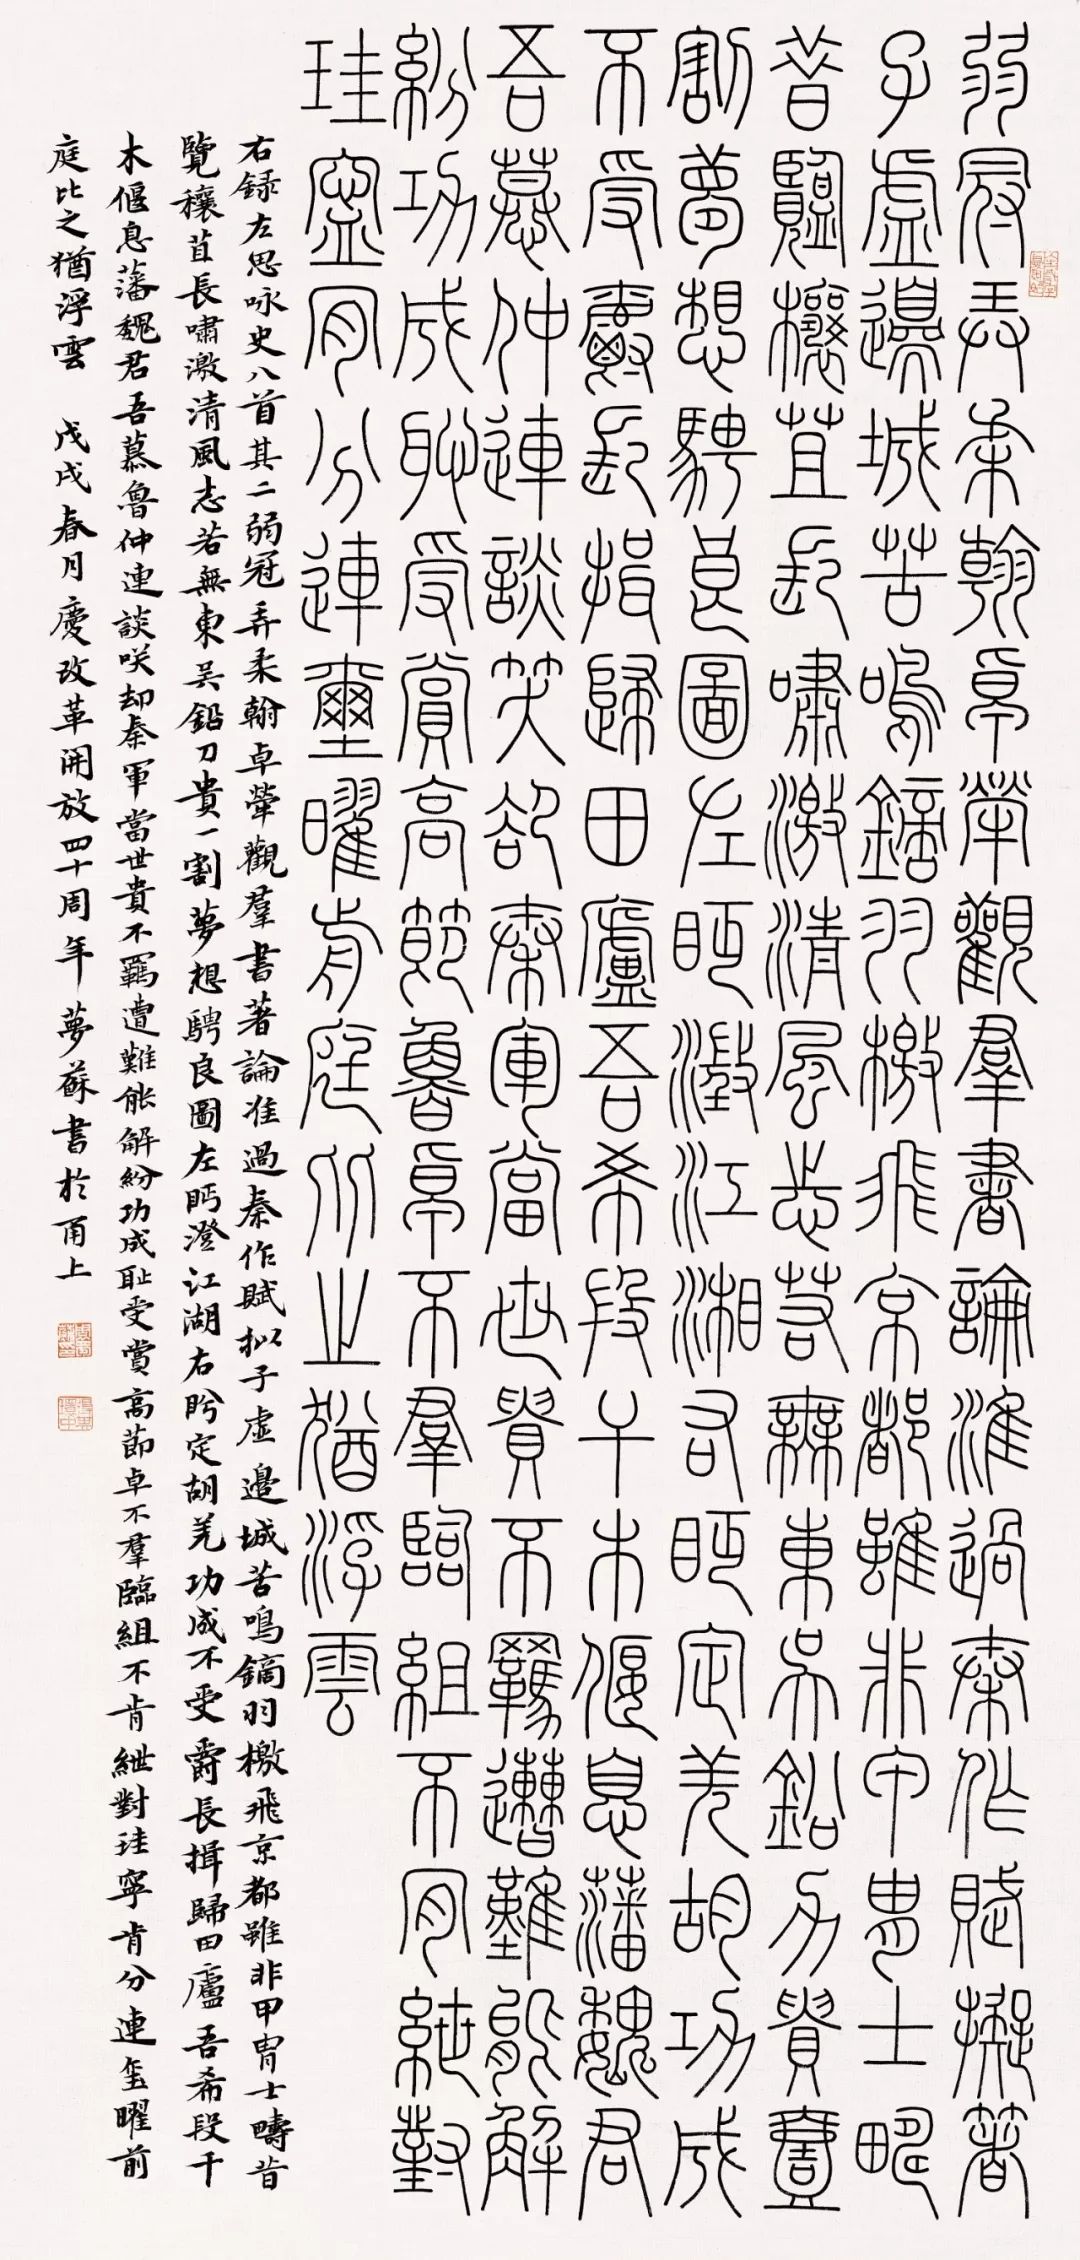 弱冠弄柔翰卓犖觀羣書論准過秦作賦擬著
子虛邊城苦鳴鏑羽檄飛京都雖非甲冑士疇
昔覽穰苴長嘯激清風志若無東吳鉛刀貴壹
割夢想騁良圖左眄澂江湘右眄定羌胡功成
不受爵長揖歸田廬吾希段干木偃息藩魏君
吾慕仲連談笑却秦軍當世貴不羈遭難能解
紛功成恥受賞高節魯卓不羣臨組不肯紲對
珪寧肯分連璽曜前庭比之猶浮雲
右録左思咏史八首其二弱冠弄柔翰卓犖觀羣書著論准過秦作賦拟子虛邊城苦鳴鏑羽檄飛京都雖非甲冑士疇昔
覽穰苴長嘯激清風志若無東吴鉛刀貴一割夢想騁良圖左眄澄江湖右盻定胡羌功成不受爵長揖歸田廬吾希段干
木偃息藩魏君吾慕魯仲連談咲却秦軍當世貴不羈遭難能解紛功成耻受賞高節卓不羣臨組不肯紲對珪寧肯分連玺曜前
庭比之猶浮雲 戊戌春月慶改革開放四十周年夢蘇書於甬上